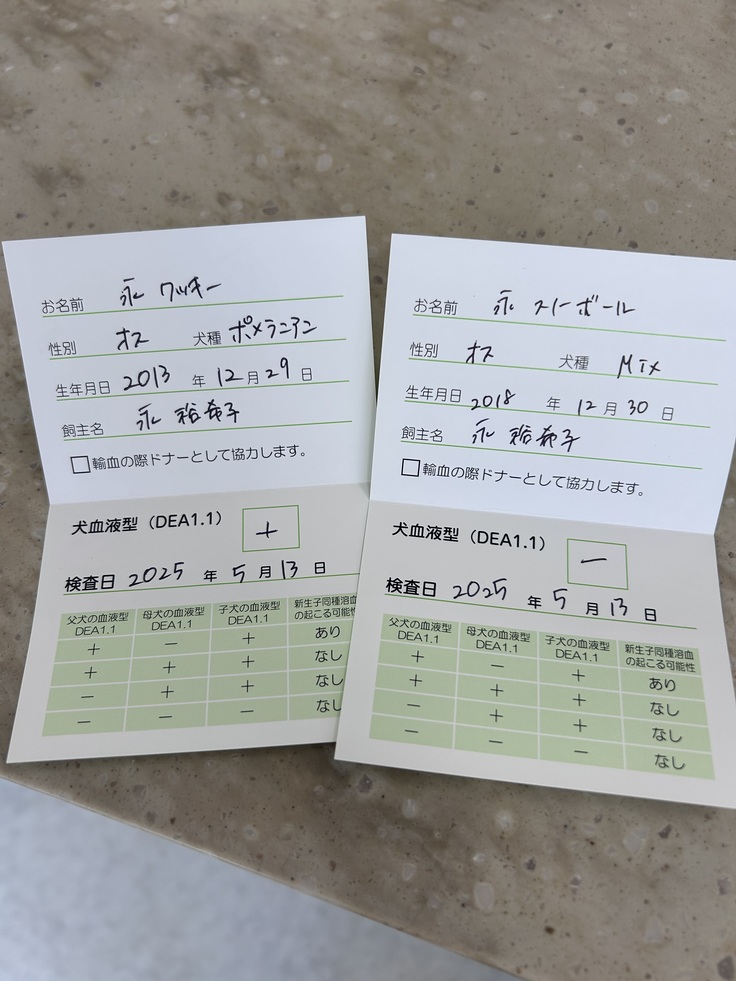 お名前 永 クッキー
性別 オス 犬種 ポメラニアン
生年月日 2013 年 12 月 29 日
飼主名 永 裕希子
輸血の際ドナーとして協力します。
犬血液型（DEA1.1） +
検査日 2025 年 5 月 13 日
父犬の血液型 DEA1.1 母犬の血液型 DEA1.1 子犬の血液型 DEA1.1 新生子同種溶血 の起こる可能性
+ － + あり
+ + + なし
－ + + なし
－ － － なし
お名前 永 スノーボール
性別 オス 犬種 MIX
生年月日 2018 年 12 月 30 日
飼主名 永 裕希子
輸血の際ドナーとして協力します。
犬血液型（DEA1.1） －
検査日 2025 年 5 月 13 日
父犬の血液型 DEA1.1 母犬の血液型 DEA1.1 子犬の血液型 DEA1.1 新生子同種溶血 の起こる可能性
+ － + あり
+ + + なし
－ + + なし
－ － － なし